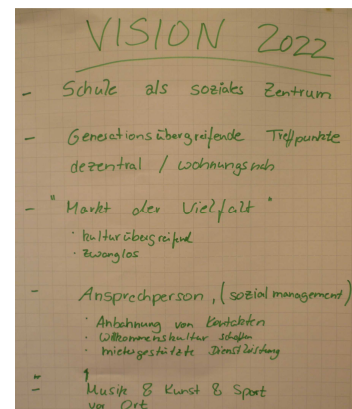 VISION 2022
- Schule als soziales Zentrum
- Generationsübergreifende Treffpunkte
dezentral / wohnungsnah
- "Markt der Vielfalt"
· kulturübergreifend
· zwanglos
- Ansprechperson, (sozialmanagement)
· Anbahnung von Kontakten
· Willkommenskultur schaffen
· mietergestützte Dienstleistung
- Musik & Kunst & Sport
vor Ort